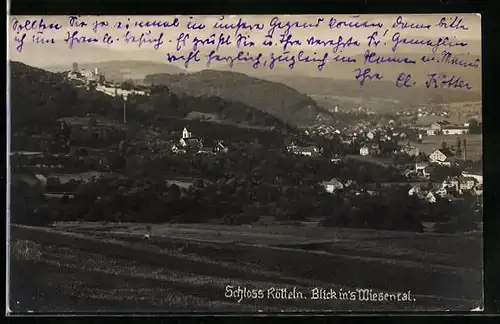 Sollten Sie ja einmal in unsere Gegend kommen, dann bitte
ich um Ihren lb. Besuch. Es grüßt Sie u. Ihre verehrte Fr. Gemahlin
recht herzlich, zugleich auch im Namen m. Mannes
Ihre Cl. Rötter
Schloss Rötteln. Blick in's Wiesental.